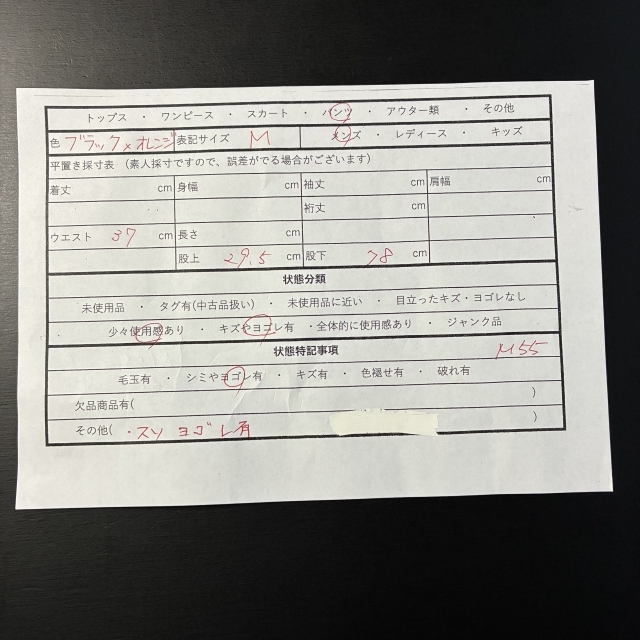 トップス ・ ワンピース ・ スカート ・ パンツ ・ アウター類 ・ その他
色 ブラック×オレンジ 表記サイズ M メンズ ・ レディース ・ キッズ
平置き採寸表 (素人採寸ですので、誤差がでる場合がございます)
着丈 cm 身幅 cm 袖丈 cm 肩幅 cm
裄丈 cm
ウエスト 37 cm 長さ cm
股上 29.5 cm 股下 78 cm
状態分類
未使用品 ・ タグ有(中古品扱い) ・ 未使用品に近い ・ 目立ったキズ・ヨゴレなし
少々使用感あり ・ キズやヨゴレ有 ・全体的に使用感あり ・ ジャンク品
状態特記事項 M55
毛玉有 ・ シミやヨゴレ有 ・ キズ有 ・ 色褪せ有 ・ 破れ有
欠品商品有( )
その他( ・スソ ヨゴレ有 )